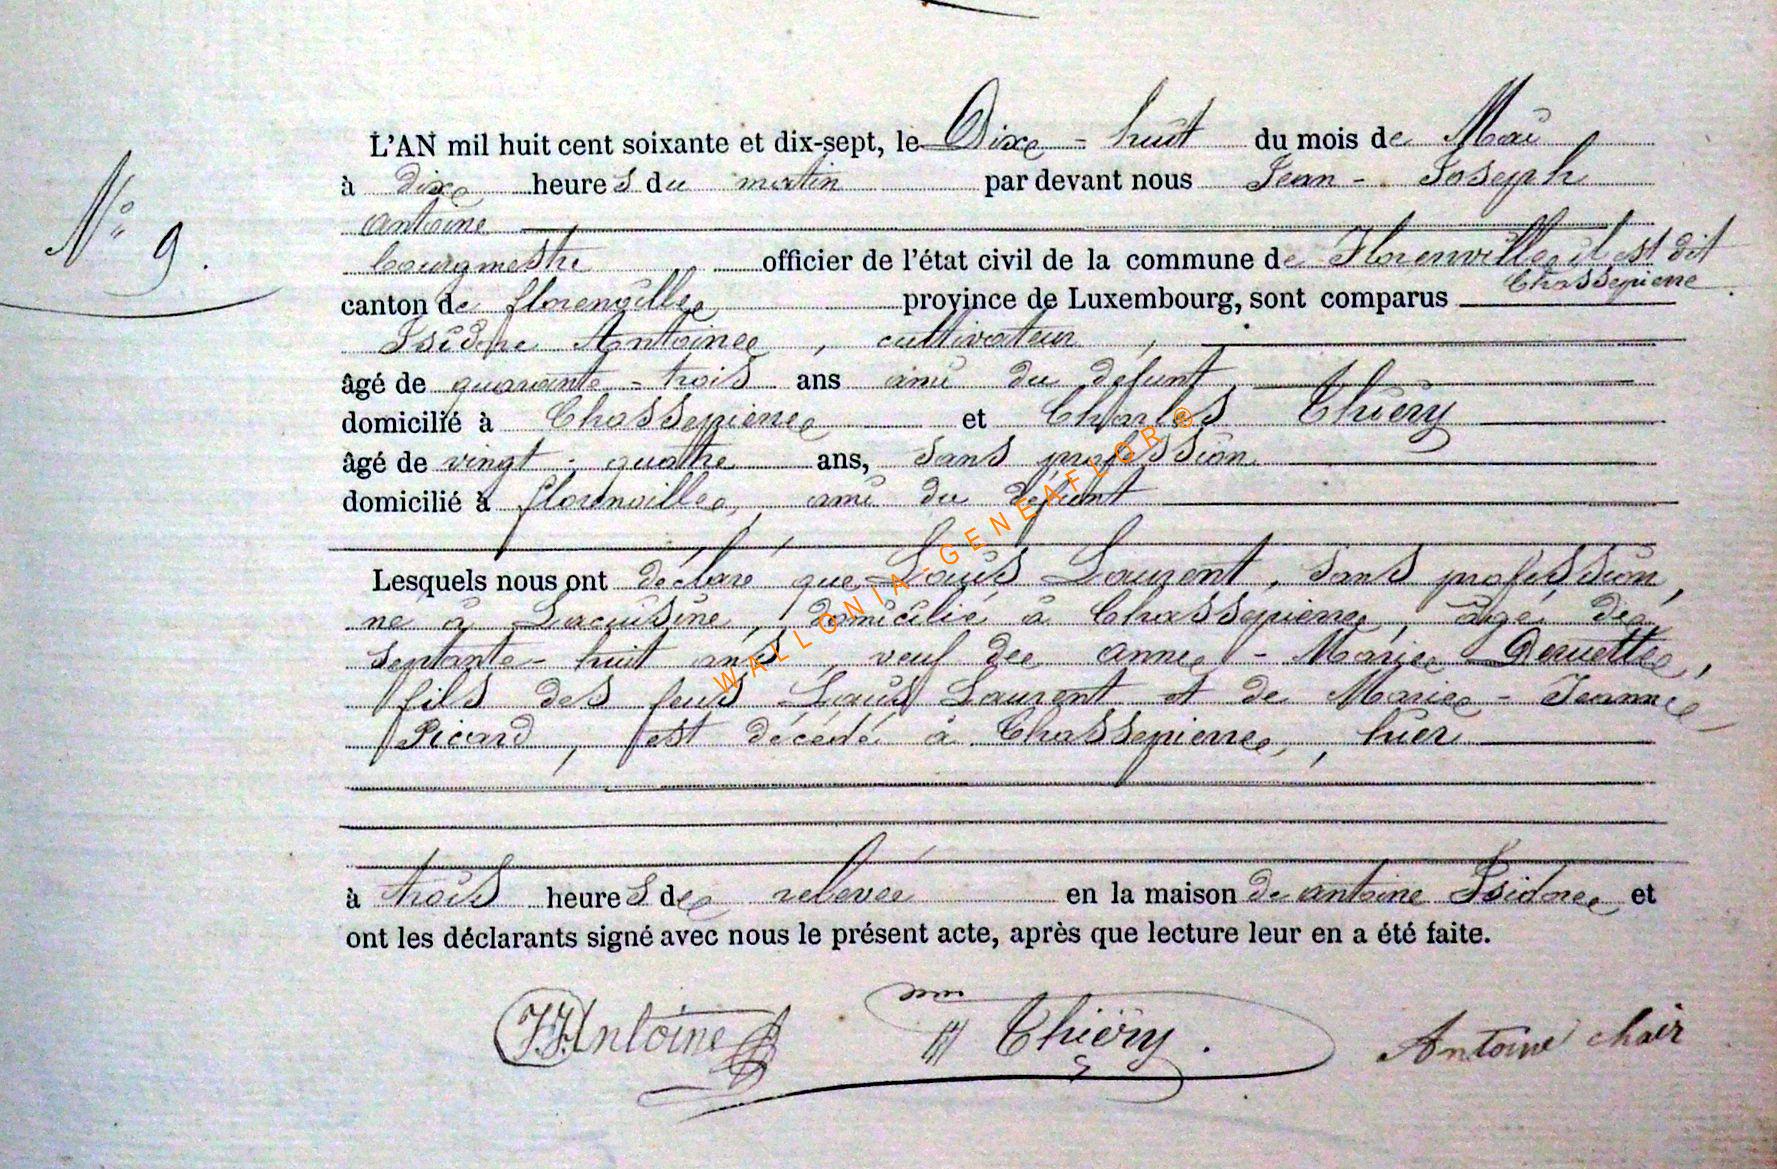 N° 9.
L'AN mil huit cent soixante et dix-sept, le Dixe - huit du mois de Mai
à dixe heures du matin par devant nous Jean - Joseph
Antoine
bourgmestre officier de l'état civil de la commune de Florenville il est dit
Chassepierre
canton de florenville province de Luxembourg, sont comparus
Isidore Antoine, cultivateur,
âgé de quarante - trois ans ami du défunt,
domicilié à Chassepierre et Charles Thiery
âgé de vingt - quatre ans, sans profession
domicilié à florenville, ami du défunt
Lesquels nous ont déclaré que Louis Laurent, sans profession,
né à Lacuisine, domicilié à Chassepierre, âgé de
septante - huit ans, veuf de Anne - Marie Dewette,
fils des feus Louis Laurent et de Marie - Jeanne
Picard, est décédé à Chassepierre, hier
à trois heures de relevée en la maison de antoine Isidore et
ont les déclarants signé avec nous le présent acte, après que lecture leur en a été faite.
JJAntoine Thiéry. Antoine
WALLONIA-GENEAFLORE